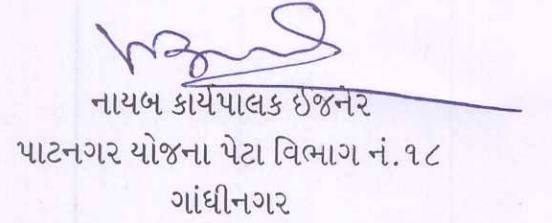 નાયબ કાર્યપાલક ઈજનેર
પાટનગર યોજના પેટા વિભાગ નં.૧૮
ગાંધીનગર